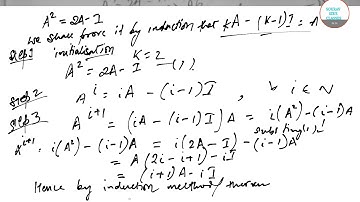 A² = 2A - I
we shall prove it by induction that kA - (k-1)I = A
Step 1 initialisation K = 2
A² = 2A - I (1)
Step 2 Aⁱ = iA - (i-1)I, ∀ i ∈ N
Step 3 Aⁱ⁺¹ = (iA - (i-1)I)A = i(A²) - (i-1)A
substituting 1
Aⁱ⁺¹ = i(A²) - (i-1)A = i(2A - I) - (i-1)A
= A(2i - i+1) - iI
= (i+1)A - iI
Hence by induction method/theorem